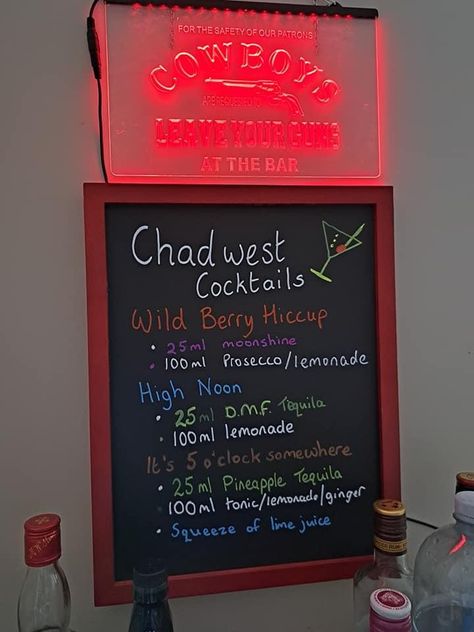 FOR THE SAFETY OF OUR PATRONS
COWBOYS
LEAVE YOUR GUNS
AT THE BAR
Chadwest
Cocktails
Wild Berry Hiccup
• 25ml moonshine
• 100ml Prosecco/lemonade
High Noon
• 25ml D.M.F. Tequila
• 100ml lemonade
It's 5 o'clock somewhere
• 25ml Pineapple Tequila
100ml tonic/lemonade/ginger
• Squeeze of lime juice